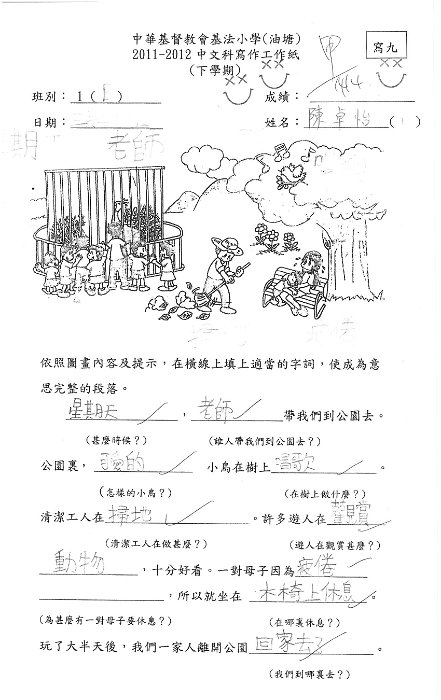 中華基督教會基法小學(油塘)
2011-2012 中文科寫作工作紙
(下學期)
寫九
甲
班別：1( )
成績：
日期：
姓名：陳卓怡( )
期 老師
依照圖畫內容及提示，在橫線上填上適當的字詞，使成為意
思完整的段落。
星期天，老師帶我們到公園去。
(甚麼時候？) (誰人帶我們到公園去？)
公園裏，可愛的小鳥在樹上唱歌。
(怎樣的小鳥？) (在樹上做什麼？)
清潔工人在掃地。許多遊人在觀賞
(清潔工人在做甚麼？) (遊人在觀賞甚麼？)
動物，十分好看。一對母子因為疲倦
，所以就坐在木椅上休息。
(為甚麼有一對母子要休息？) (在哪裏休息？)
玩了大半天後，我們一家人離開公園回家去了
(我們到哪裏去？)